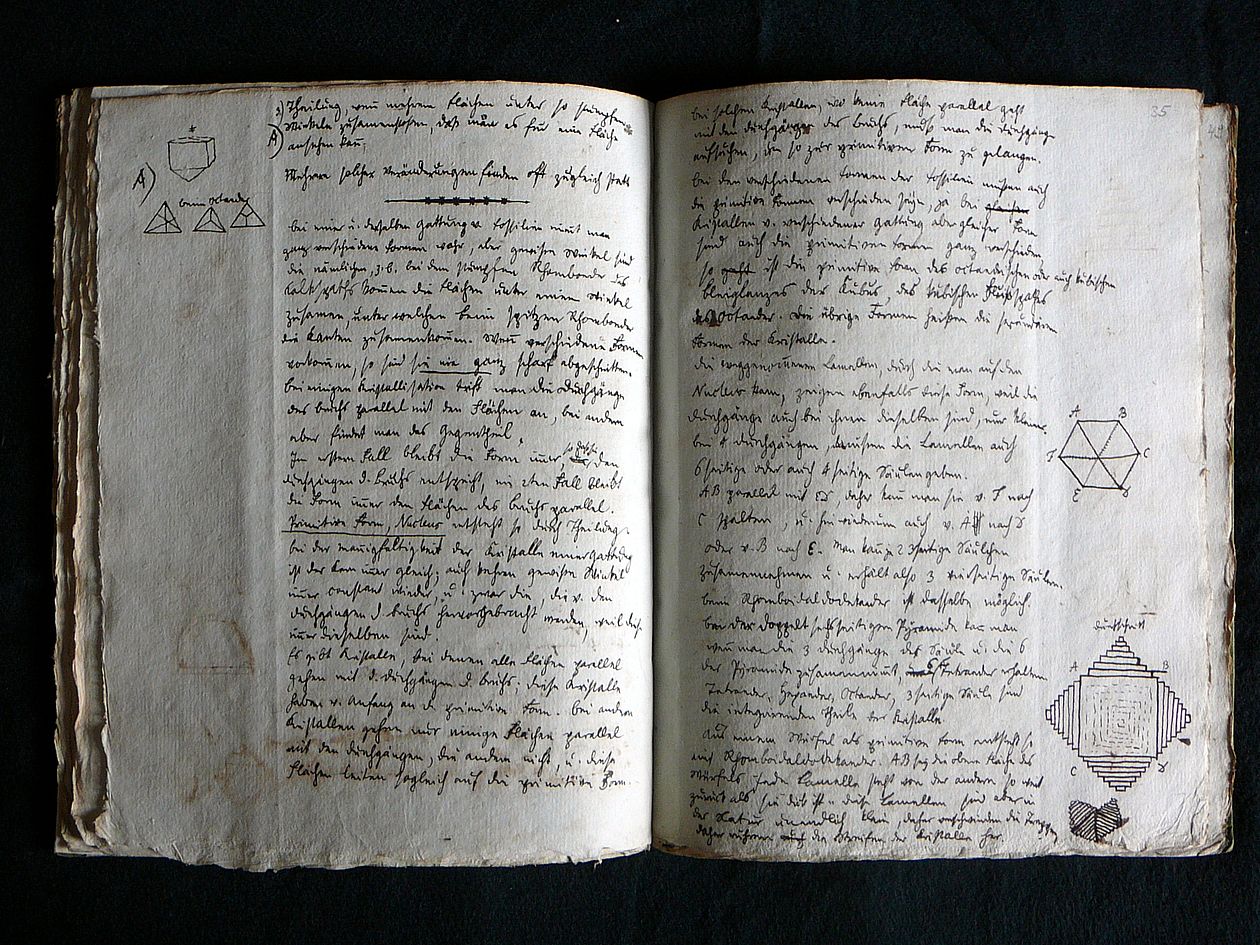 3) Theilung, wenn mehrere Flächen unter so stumpfen
A) Winkeln zusammenstoßen, daß man es für eine Fläche
ansehen kan.
Mehrere solcher Veränderungen finden oft zugleich statt
A)
beim Octaeder
bei einer u. derselben Gattung v. Fossilien nimt man
ganz verschiedene Formen wahr, aber gewiße Winkel sind
die nämlichen, z. b. bei dem stumpfen Rhomboeder des
Kalkspaths kommen die Flächen unter einem Winkel
zusamen, unter welchen beim spitzen Rhomboeder
die Kanten zusamenkommen. Wenn verschiedene Formen
vorkommen, so sind sie nie ganz scharf abgeschnitten.
bei einigen Kristallisation trift man die Durchgänge
des bruchs parallel mit den Flächen an, bei andern
aber findet man das Gegentheil.
Im erstern Fall bleibt die Form immer, so den
durchgängen d. bruchs entspricht, im 2ten Fall bleibt
die Form immer den Flächen des bruchs parallel.
Primitive Form, Nucleus entsteht so durch Theilung.
bei der Manigfaltigkeit der Kristalle einer Gattung
ist der Kern immer gleich; auch kehren gewiße Winkel
immer constant wieder, u. zwar die die v. den
durchgängen d. bruchs hervorgebracht werden, weil diese
immer dieselben sind.
Es gibt Kristalle, bei denen alle Flächen parallel
gehen mit d. durchgängen d. bruchs; diese Kristalle
haben v. Anfang an die primitive Form. bei andern
Kristallen gehen nur einige Flächen parallel
mit den durchgängen, die andern nicht, u. diese
Flächen leiten sogleich auf die primitive Form.
35
bei solchen Kristallen, wo keine Fläche parallel geht
mit den durchgängen des bruchs, muß man die durchgänge
aufsuchen, um so zur primitiven Form zu gelangen.
bei den verschiedenen Formen der Fossilien müßen auch
die primitive Formen verschieden seyn, ja bei
Kristallen v. verschiedener Gattung aber gleicher Form
sind auch die primitiven Formen ganz verschieden
so ist die primitive Form des octaedrischen oder auch kubischen
bleiglanzes der Kubus, des kubischen Flußspathes
das Octaeder. Die übrige Formen heißen die secundären
Formen der Kristalle.
Die weggenommenen Lamellen, durch die man auf den
Nucleus kam, zeigen ebenfalls diese Form, weil die
durchgänge auch bei ihnen dieselben sind, nur kleiner.
bei 4 durchgängen, müßen die Lamellen auch
6seitige oder auch 4seitige Säulen geben.
AB parallel mit ED daher kan man sie v. F nach
C spalten, u. hinwiederum auch v. A nach D
oder v. B nach E. Man kan je 2 3seitige Säulchen
zusammennehmen u. erhält also 3 vierseitige Säulen
beim Rhomboidaldodekaeder ist dasselbe möglich.
bei der doppelt sechsseitigen Pyramide kan man
wenn man die 3 durchgänge der Säule u. die 6
der Pyramide zusammennimt, Tetraeder erhalten
Tetraeder, Hexaeder, Octaeder, 3seitige Säule sind
die integrierenden Theile der Kristalle
Aus einem Würfel als primitive Form entsteht so
ein Rhomboidaldodekaeder. AB sey die obere Fläche des
Würfels. Jede Lamelle steht von der andern so weit
zurück als sie dick ist. diese Lamellen sind aber in
der Natur unendlich klein, daher verschwinden die Treppen
daher rühren auch die Streifen der Kristalle her.
A B
F C
E D
durchschnitt
A B
C D